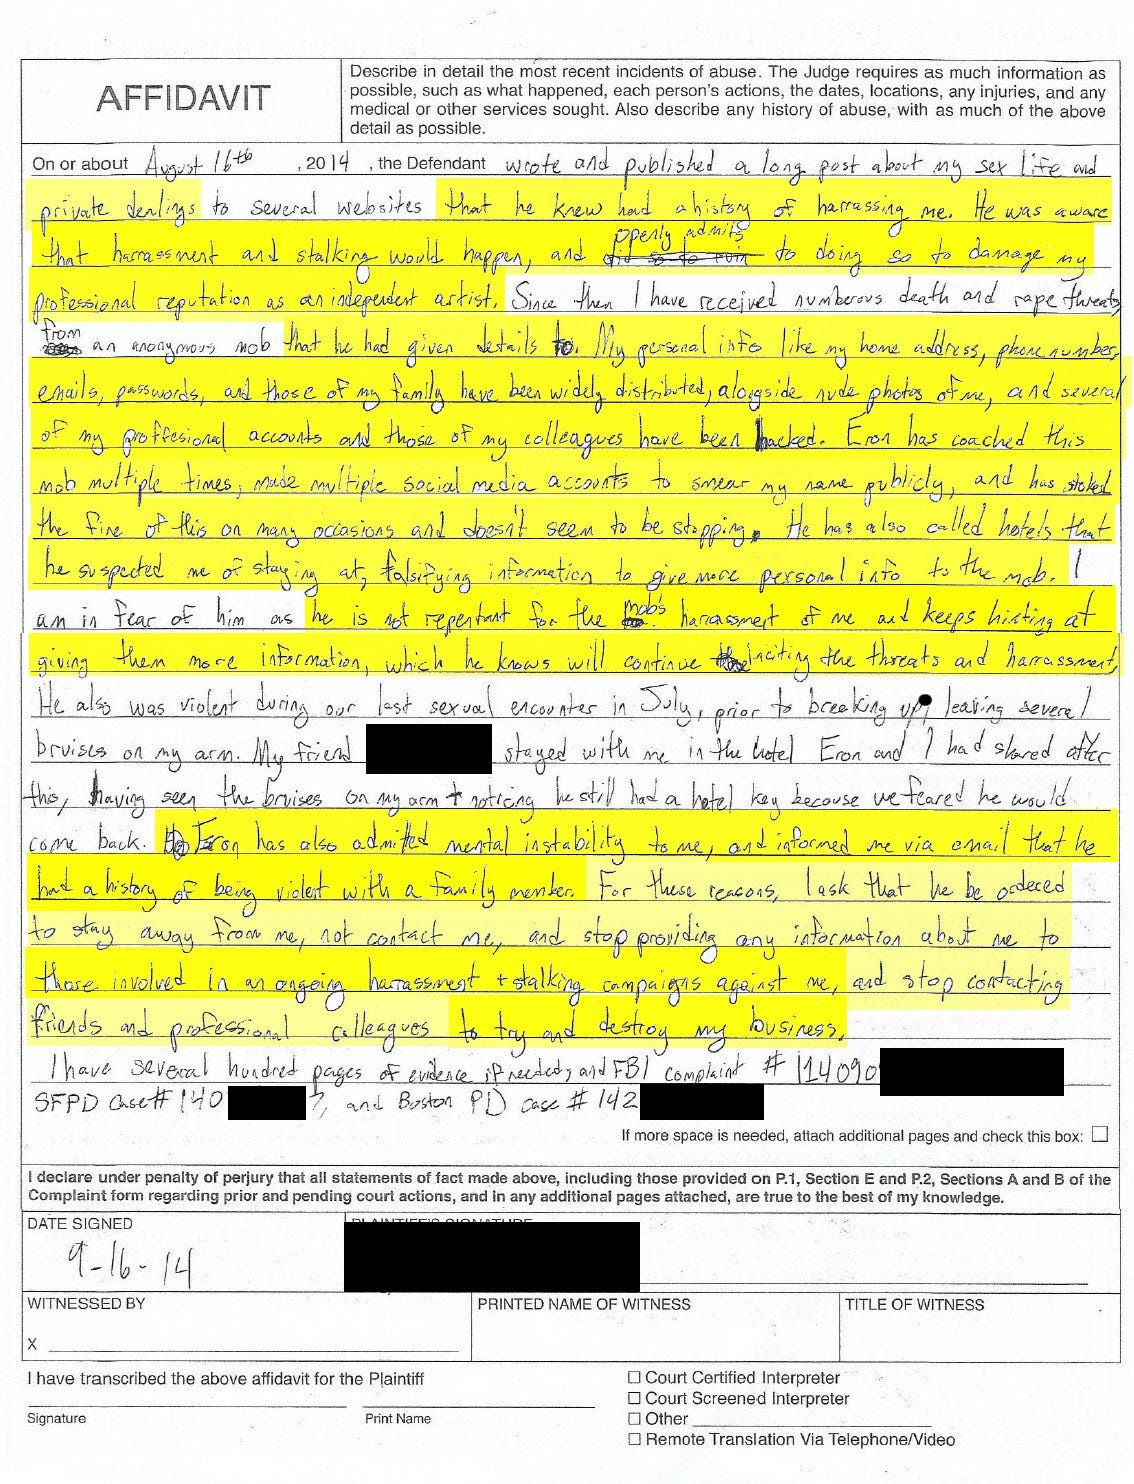 AFFIDAVIT
Describe in detail the most recent incidents of abuse. The Judge requires as much information as
possible, such as what happened, each person's actions, the dates, locations, any injuries, and any
medical or other services sought. Also describe any history of abuse, with as much of the above
detail as possible.
On or about August 16th, 2014, the Defendant wrote and published a long post about my sex life and
private dealings to several websites that he knew had a history of harrassing me. He was aware
that harrassment and stalking would happen, and openly admits to doing so to damage my
professional reputation as an independent artist. Since then I have received numberous death and rape threats
from an anonymous mob that he had given details to. My personal info like my home address, phone number,
emails, passwords, and those of my family have been widely distributed, alongside nude photos of me, and several
of my proffesional accounts and those of my colleagues have been hacked. Eron has coached this
mob multiple times, made multiple social media accounts to smear my name publicly, and has stoked
the fire of this on many occasions and doesn't seem to be stopping. He has also called hotels that
he suspected me of staying at, falsifying information to give more personal info to the mob. I
am in fear of him as he is not repentant for the mob's harrassment of me and keeps hinting at
giving them more information, which he knows will continue inciting the threats and harrassment,
He also was violent during our last sexual encounter in July, prior to breaking up, leaving several
bruises on my arm. My friend stayed with me in the hotel Eron and I had shared after
this, having seen the bruises on my arm + noticing he still had a hotel key because we feared he would
come back. Eron has also admitted mental instability to me, and informed me via email that he
had a history of being violent with a family member. For these reasons, I ask that he be ordered
to stay away from me, not contact me, and stop providing any information about me to
those involved in an ongoing harrassment + stalking campaigns against me, and stop contacting
friends and professional colleagues to try and destroy my business.
I have several hundred pages of evidence if needed, and FBI complaint # 114090
SFPD Case# 140 , and Boston PD case # 142
If more space is needed, attach additional pages and check this box:
I declare under penalty of perjury that all statements of fact made above, including those provided on P.1, Section E and P.2, Sections A and B of the
Complaint form regarding prior and pending court actions, and in any additional pages attached, are true to the best of my knowledge.
DATE SIGNED
PLAINTIFF'S SIGNATURE
9-16-14
WITNESSED BY
PRINTED NAME OF WITNESS
TITLE OF WITNESS
X
I have transcribed the above affidavit for the Plaintiff
Signature
Print Name
Court Certified Interpreter
Court Screened Interpreter
Other
Remote Translation Via Telephone/Video